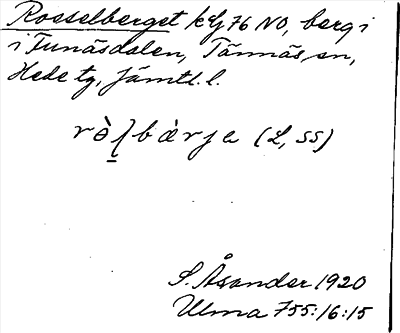 Rosselberget kLj 76 NO, berg i
i Funäsdalen, Tännäs sn,
Hede tg, Jämtl. l.
rò̱ʃbàrja (L, SS)
S. Åsander 1920
Ulma 755:16:15